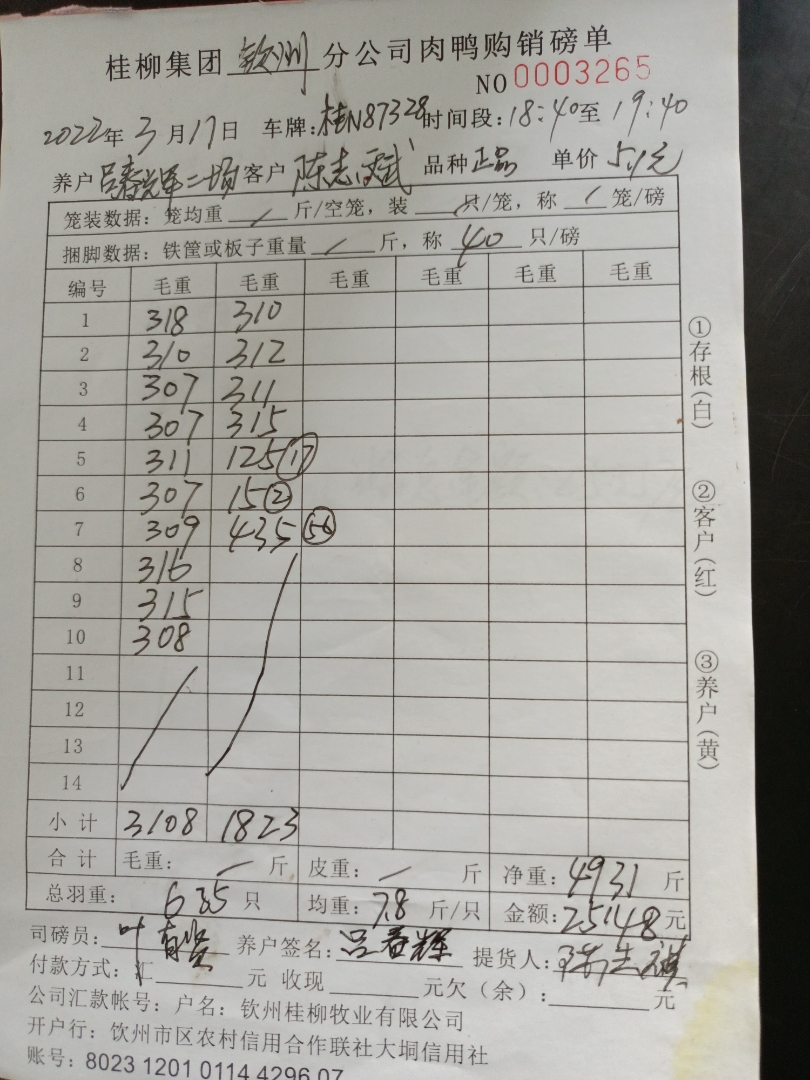 桂柳集团 钦州 分公司肉鸭购销磅单
NO 0003265
2022年 3 月 17 日 车牌:桂N87328 时间段:18:40至 19:40
养户 吕春辉二场 客户 陈志 品种 正品 单价 5.1元
笼装数据: 笼均重 / 斤/空笼, 装 / 只/笼, 称 / 笼/磅
捆脚数据: 铁筐或板子重量 / 斤, 称 40 只/磅
编号 毛重 毛重 毛重 毛重 毛重 毛重
1 318 310
2 310 312
3 307 311
4 307 315
5 311 125 ⑰
6 307 15 ②
7 309 435 (56)
8 316
9 315
10 308
11
12
13
14
小 计 3108 1823
合 计 毛重: / 斤 皮重: / 斤 净重: 4931 斤
总羽重: 635 只 均重: 7.8 斤/只 金额: 25148 元
司磅员: 叶 养户签名: 吕春辉 提货人: 陈
付款方式: 汇 元 收现 元欠(余): 元
公司汇款帐号: 户名: 钦州桂柳牧业有限公司
开户行: 钦州市区农村信用合作联社大垌信用社
账号: 8023 1201 0114 4296 07
①存根(白)
②客户(红)
③养户(黄)